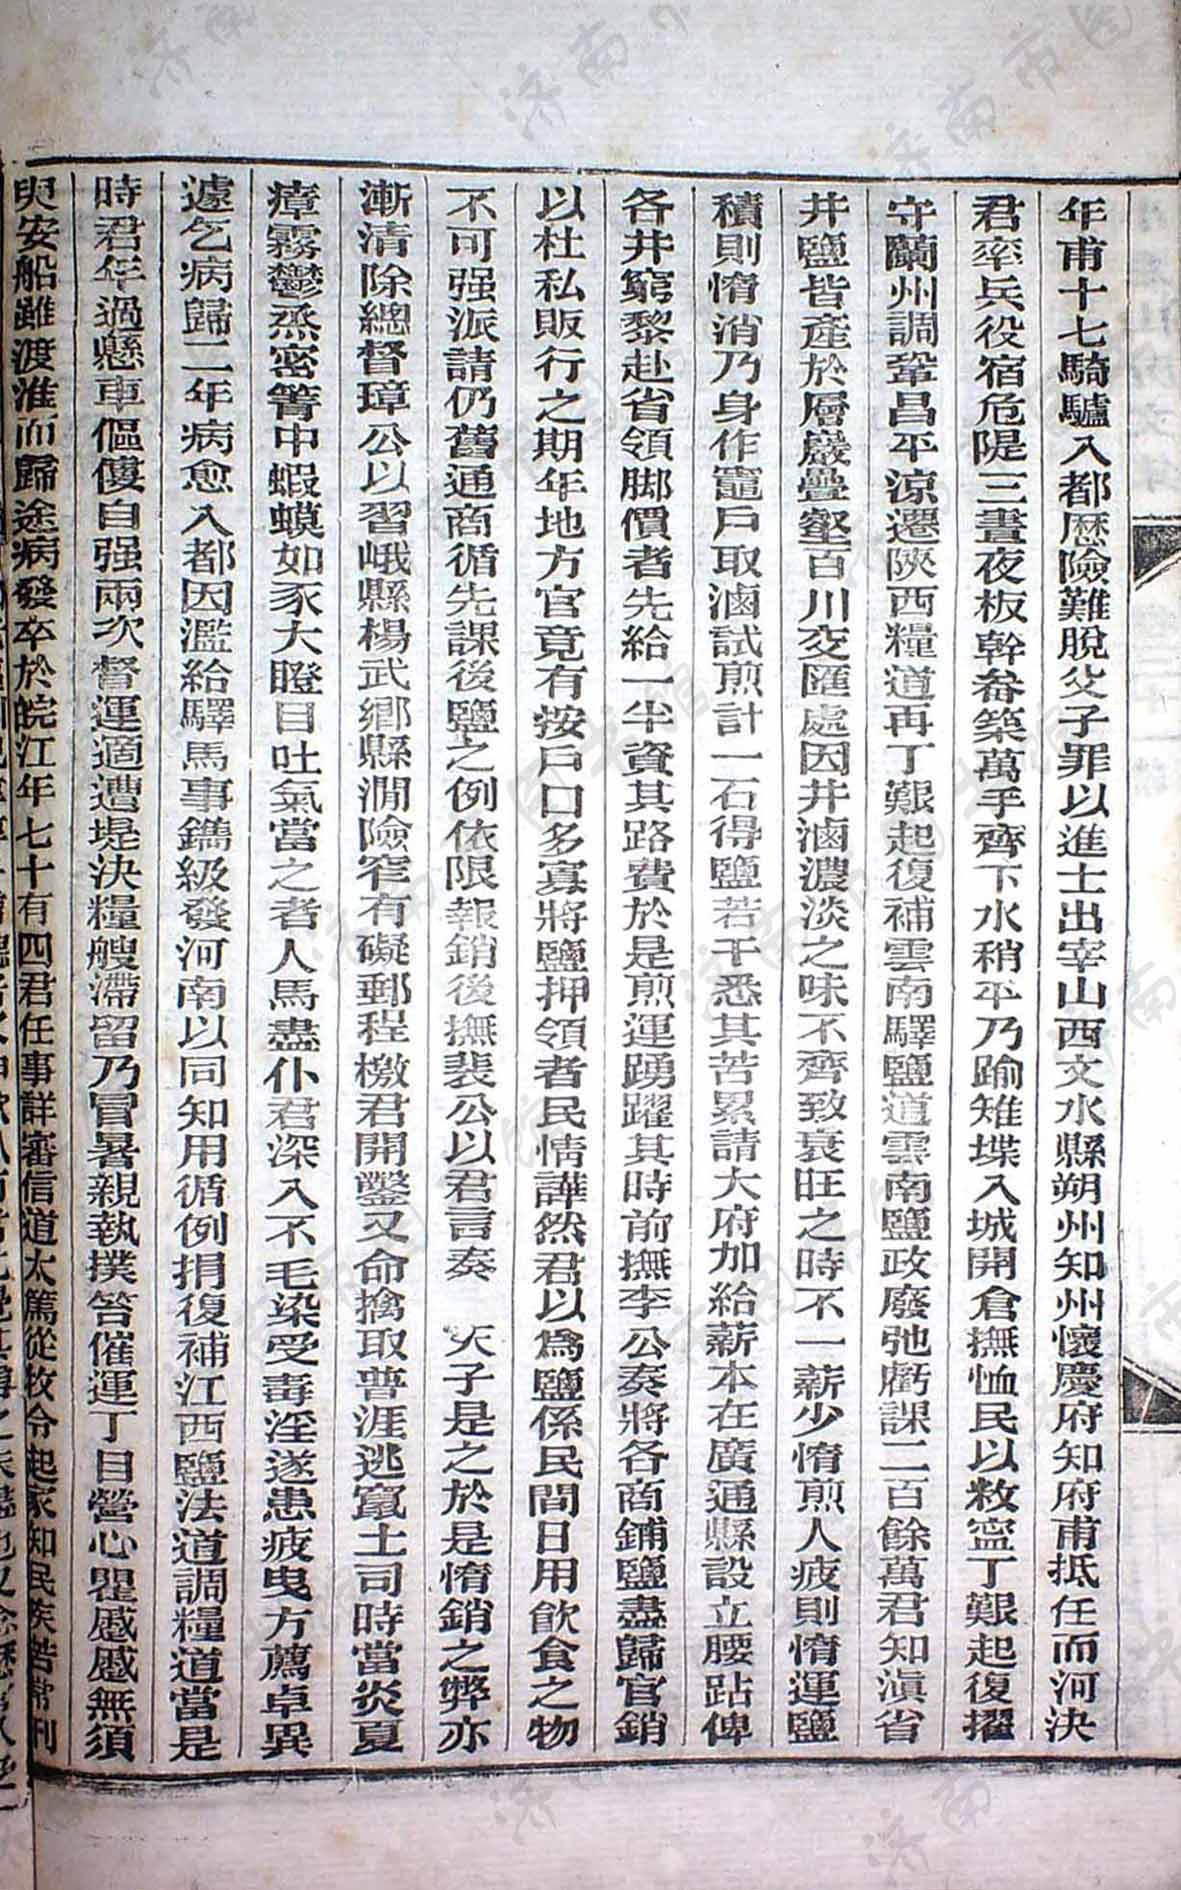 年甫十七騎驢入都歷險難脫父子罪以進士出宰山西文水縣朔州知州懷慶府知府甫抵任而河決
君率兵役宿危隄三晝夜板幹畚築萬手齊下水稍平乃踰雉堞入城開倉撫恤民以敉寧丁艱起復擢
守蘭州調鞏昌平涼遷陝西糧道再丁艱起復補雲南驛鹽道雲南鹽政廢弛虧課二百餘萬君知滇省
井鹽皆產於層巖疊壑百川交匯處因井滷濃淡之味不齊致衰旺之時不一薪少惰煎人疲則惰運鹽
積則惰消乃身作竈戶取滷試煎計一石得鹽若干悉其苦累請大府加給薪本在廣通縣設立腰站俾
各井窮黎赴省領脚價者先給一半資其路費於是煎運踴躍其時前撫李公奏將各商鋪鹽盡歸官銷
以杜私販行之期年地方官竟有按戶口多寡將鹽押領者民情譁然君以爲鹽係民間日用飲食之物
不可强派請仍舊通商循先課後鹽之例依限報銷後撫裴公以君言奏 天子是之於是惰銷之弊亦
漸清除總督璋公以習峨縣楊武鄉縣澗險窄有礙郵程檄君開鑿又命擒取普洱逃竄土司時當炎夏
瘴霧鬱烝密箐中蝦蟆如豕大瞪目吐氣當之者人馬盡仆君深入不毛染受毒淫遂患疲曳方薦卓異
遽乞病歸二年病愈入都因濫給驛馬事鐫級發河南以同知用循例捐復補江西鹽法道調糧道當是
時君年過懸車傴僂自强兩次督運適遭堤決糧艘滯留乃冒暑親執撲笞催運丁目營心瞿慼慼無須
臾安船雖渡淮而歸途病發卒於皖江年七十有四君任事詳審信道太篤從牧令起家知民疾苦常刊